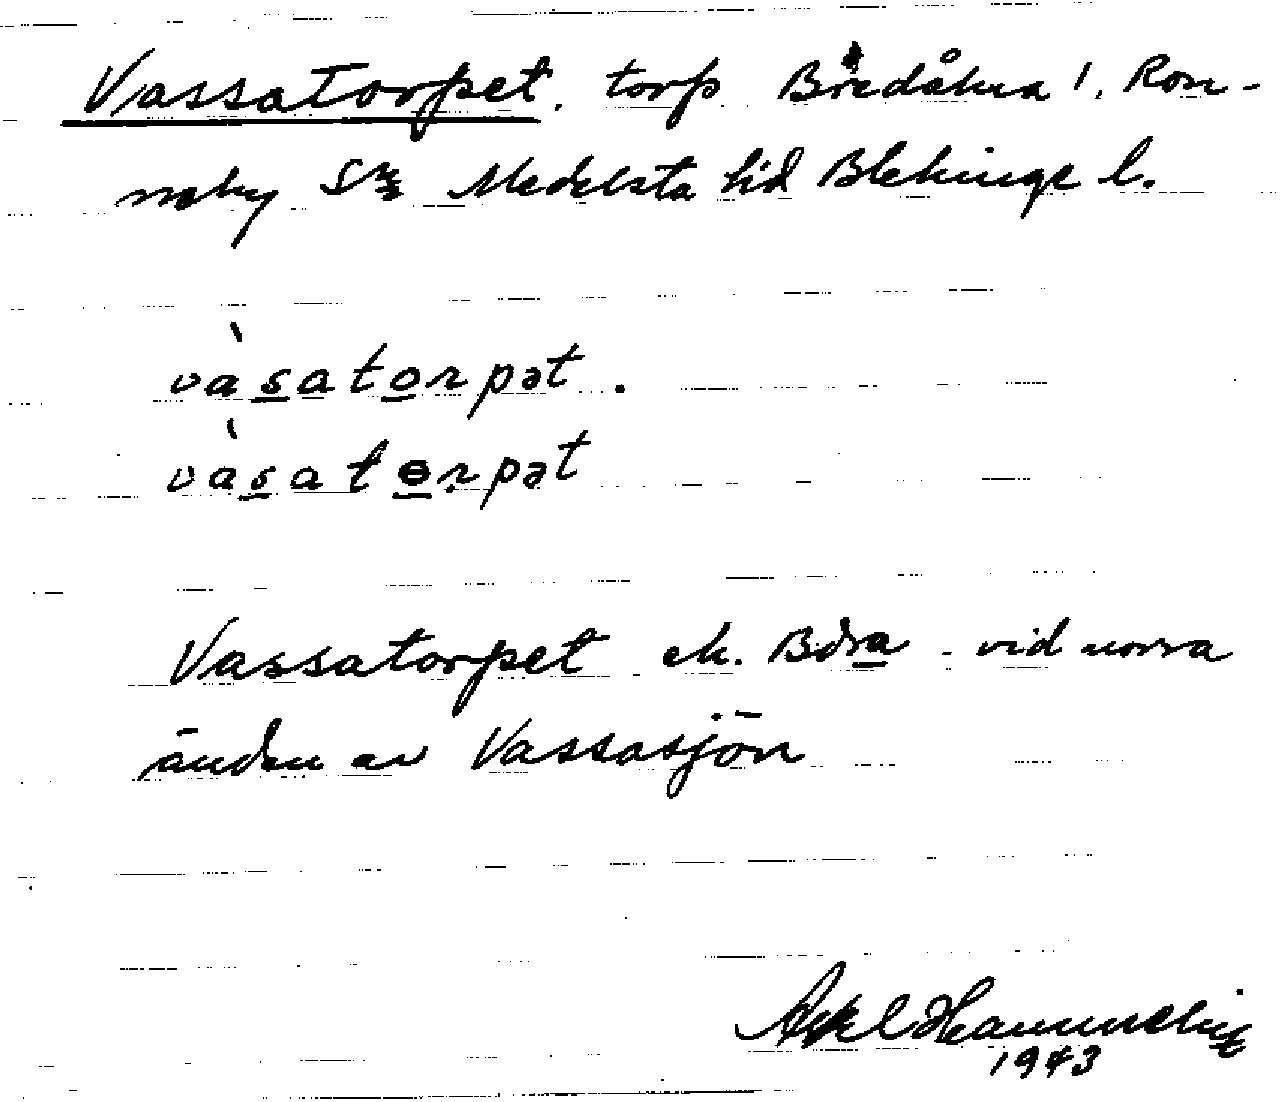 Vassatorpet. torp Bredåkra 1, Ron-
neby Sn Medelsta hd Blekinge l.
vàsatorpət.
vàsatɵrpət
Vassatorpet ek. Bdra - vid norra
änden av Vassasjön
Axel
1943